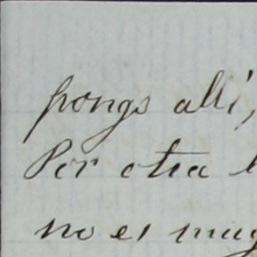 pongo allí,
Por otra
no es muy